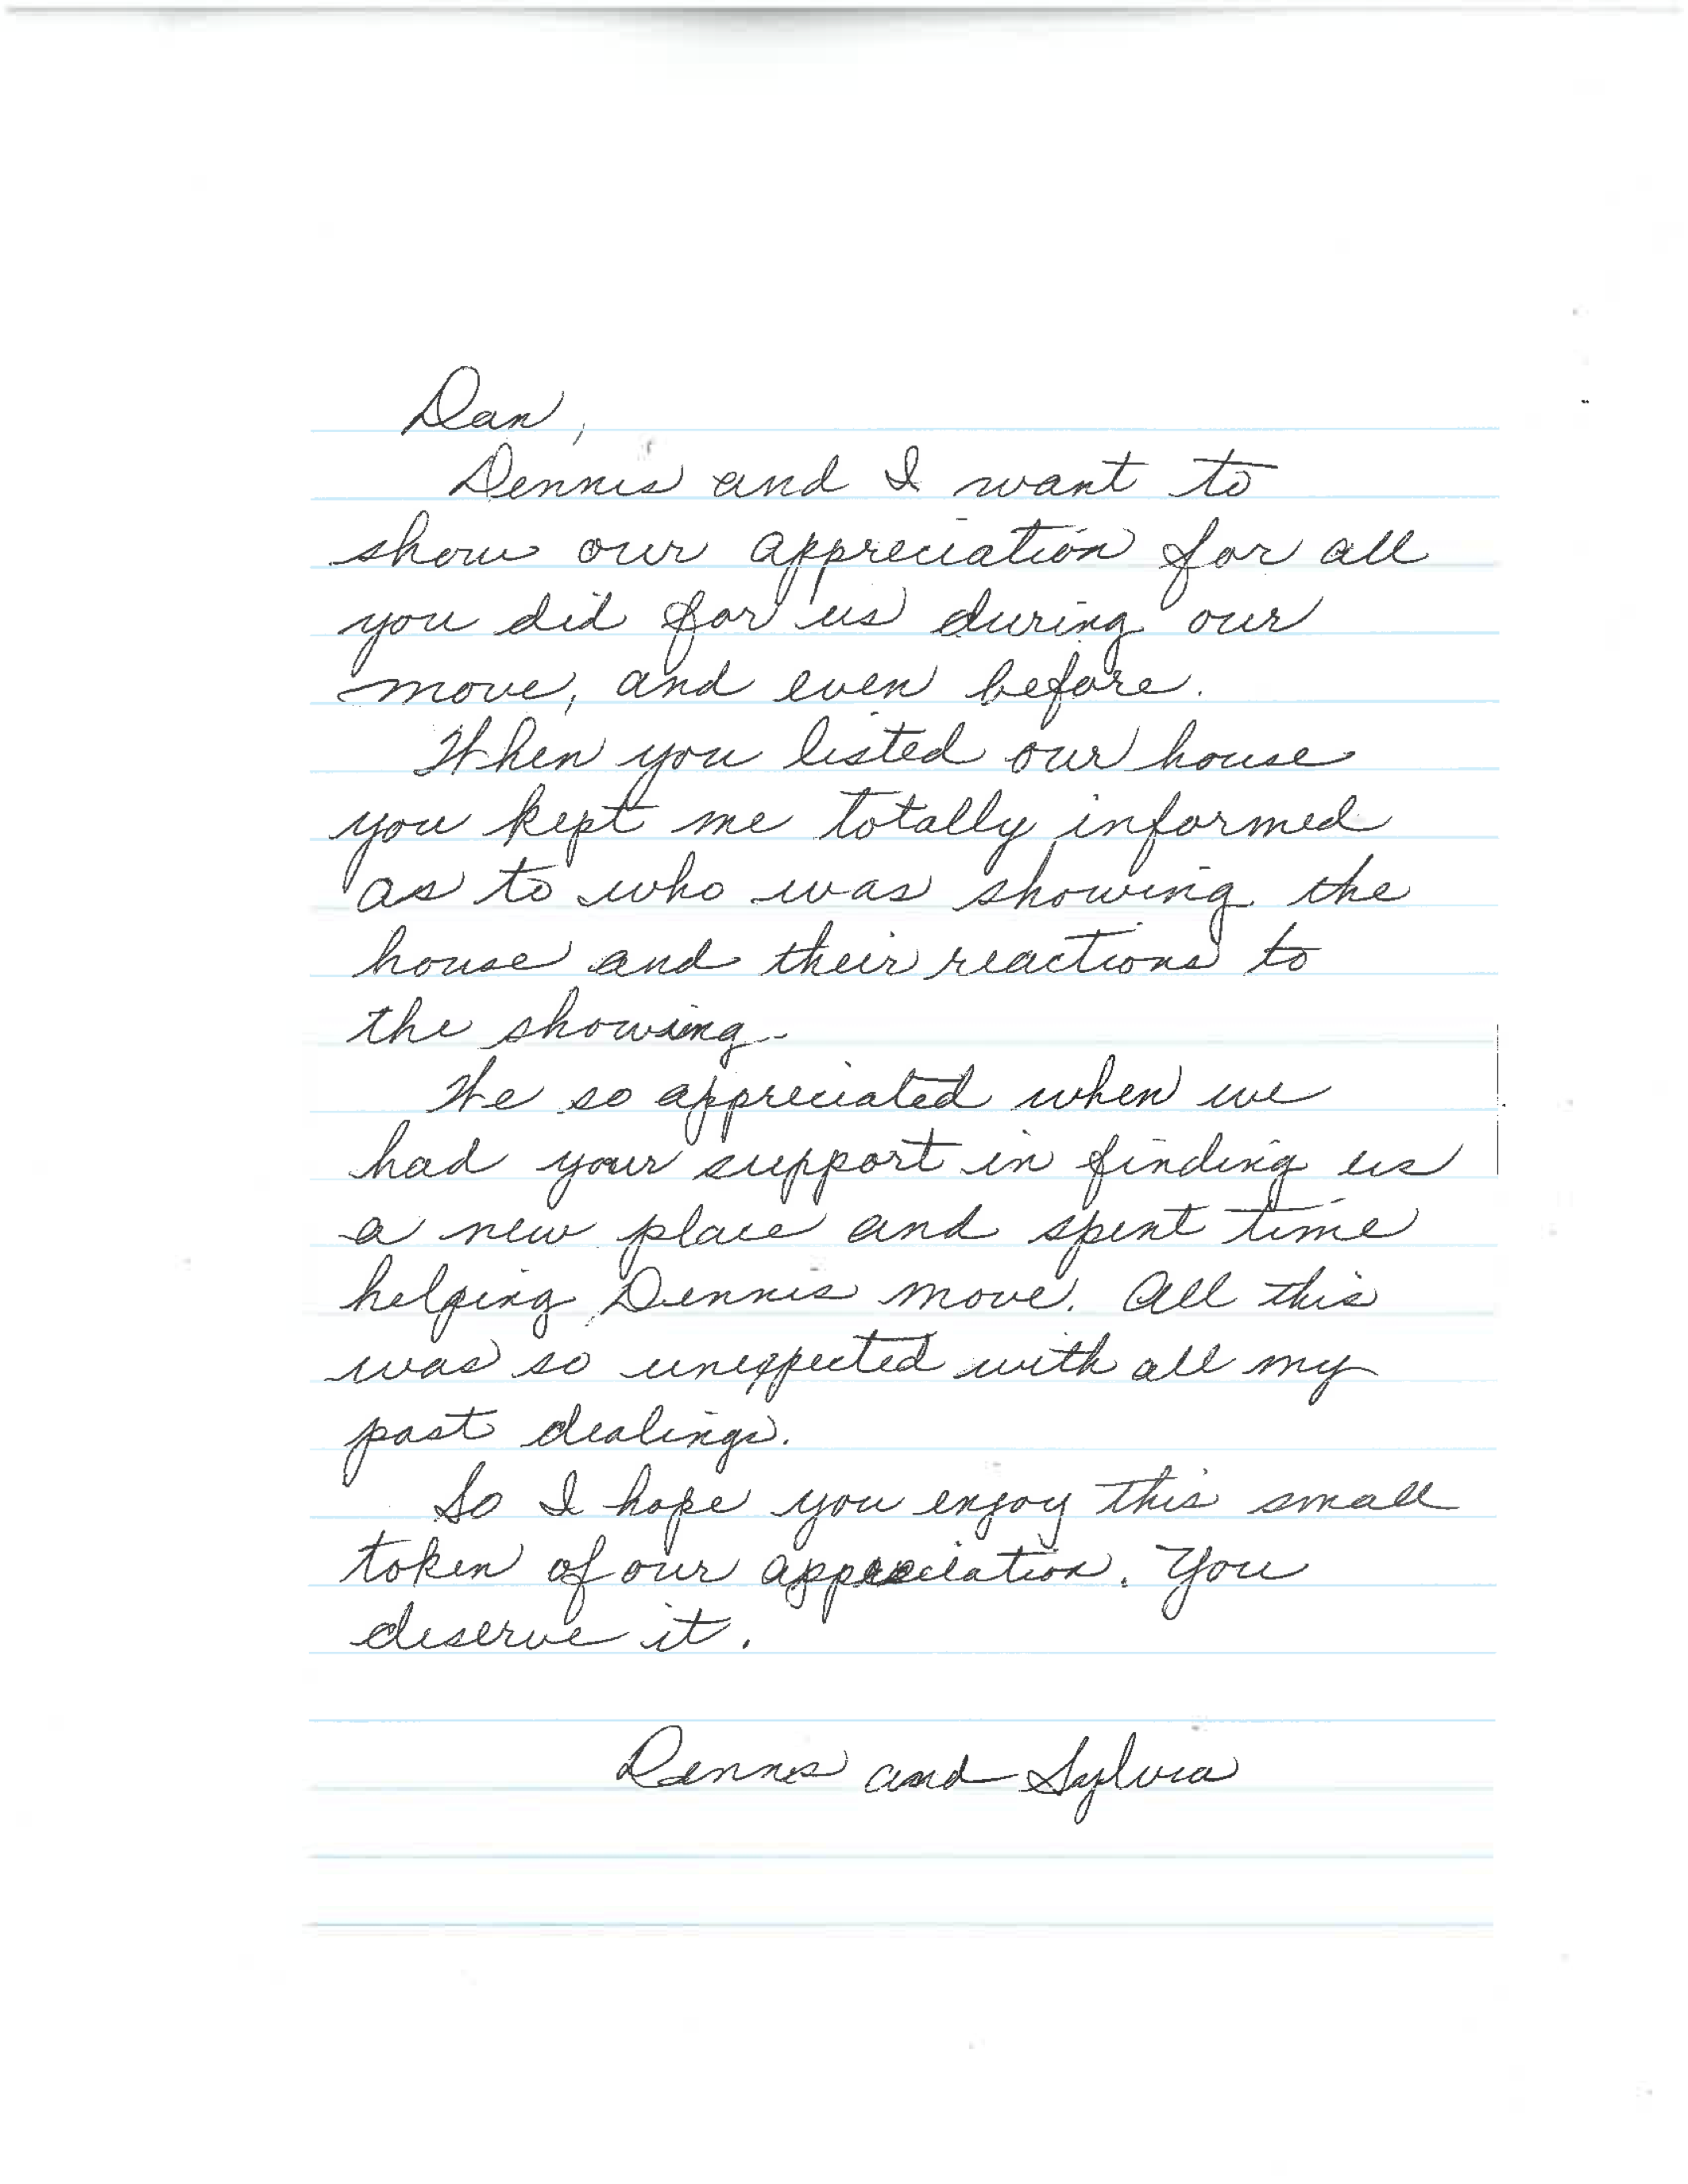 Dan,
Dennis and I want to
show our appreciation for all
you did for us during our
move, and even before.
When you listed our house
you kept me totally informed
as to who was showing the
house and their reactions to
the showing.
We so appreciated when we
had your support in finding us
a new place and spent time
helping Dennis move. All this
was so unexpected with all my
past dealings.
So I hope you enjoy this small
token of our appreciation. You
deserve it.
Dennis and Sylvia